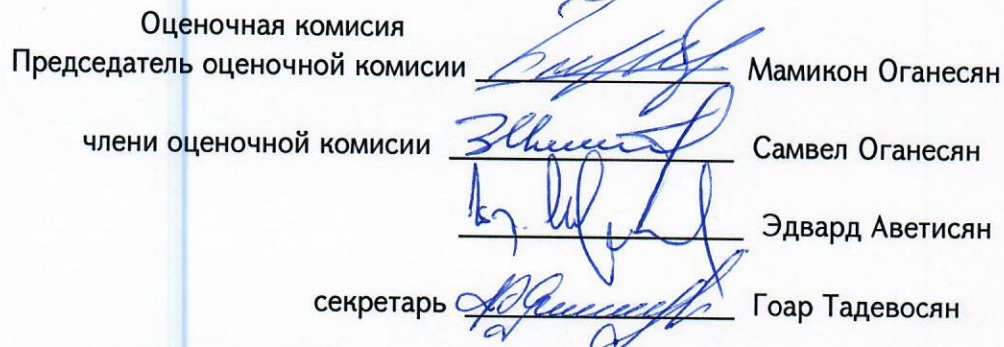 Оценочная комисия
Председатель оценочной комисии Мамикон Оганесян
члени оценочной комисии Самвел Оганесян
Эдвард Аветисян
секретарь Гоар Тадевосян